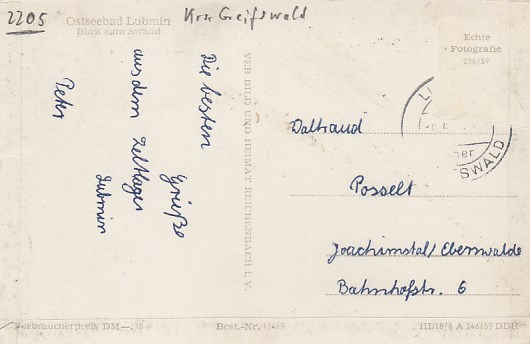 2205
Krs. Greifswald
Ostseebad Lubmin
Blick zum Strand
Echte
Fotografie
246/59
Die besten
Grüße
aus dem Zeltlager
Lubmin
Peter
VEB BILD UND HEIMAT REICHENBACH I. V.
SWALD
Waltraud
Posselt
Joachimstal/Eberswalde
Bahnhofstr. 6
Verbraucherpreis DM
Best.-Nr.
III/18/6 A 246/59 DDR